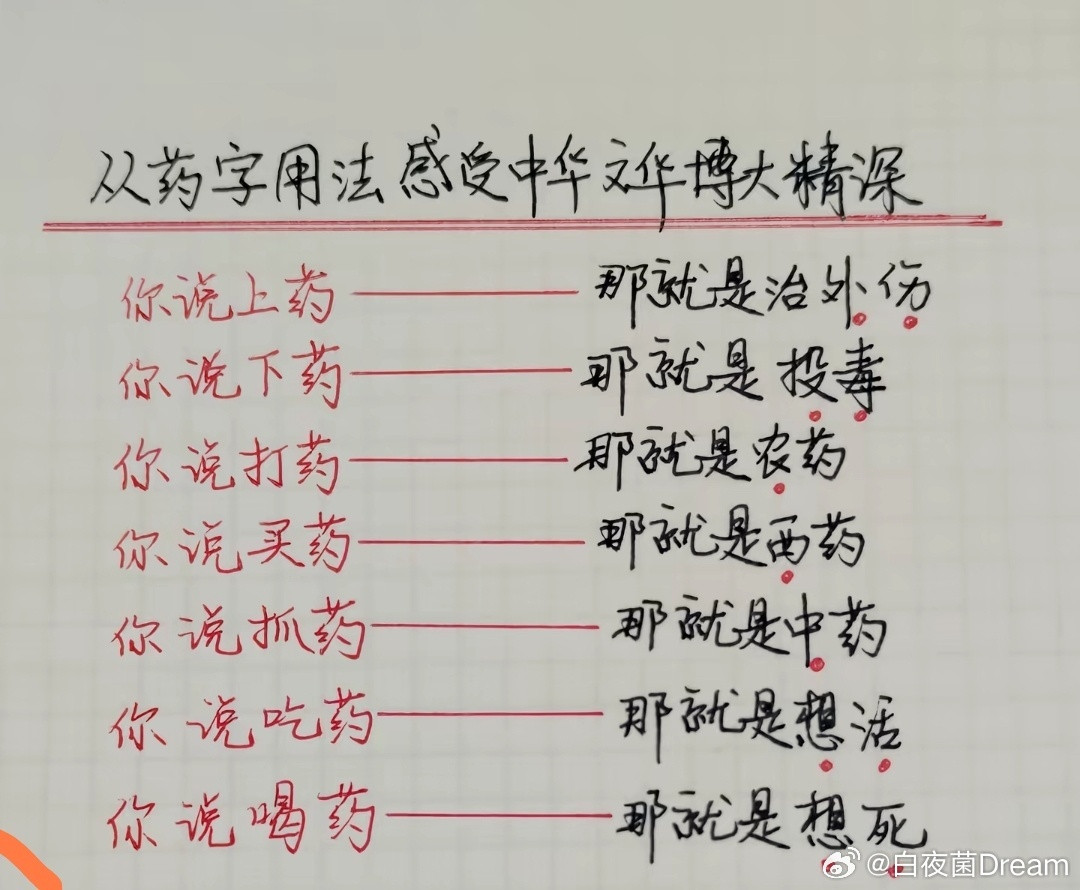 从药字用法感受中华文华博大精深
你说上药——那就是治外伤
你说下药——那就是投毒
你说打药——那就是农药
你说买药——那就是西药
你说抓药——那就是中药
你说吃药——那就是想活
你说喝药——那就是想死
@白夜菌Dream